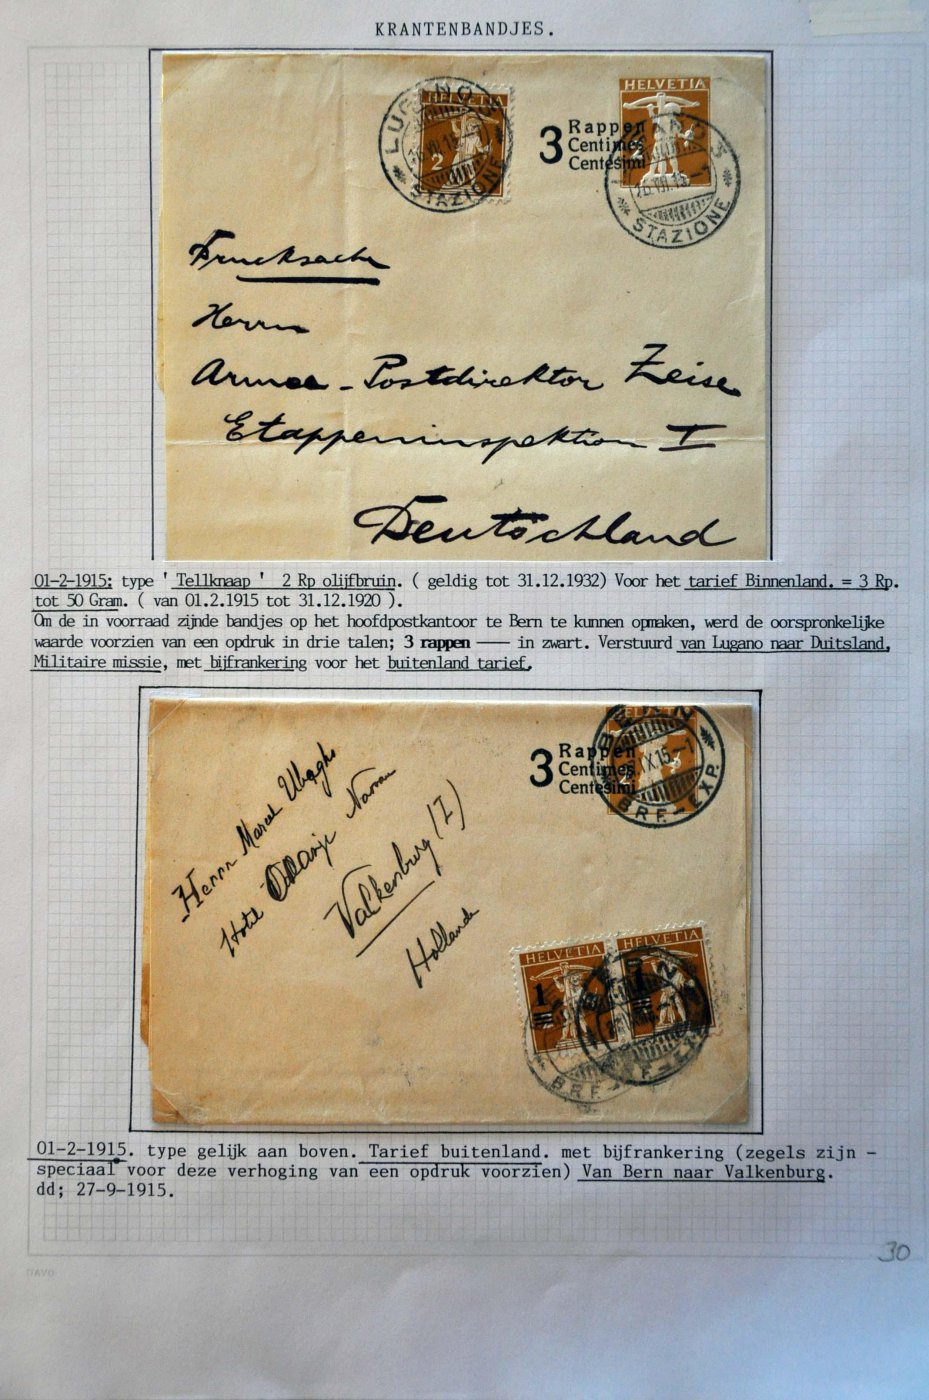 KRANTENBANDJES.
LUGANO
STAZIONE
HELVETIA
2
3 Rappen
Centimes
Centesimi
HELVETIA
2
STAZIONE
Drucksache
Herrn
Armee-Postdirektor Zeise
Etappeninspektion I
Deutschland
01-2-1915: type ' Tellknaap ' 2 Rp olijfbruin. ( geldig tot 31.12.1932) Voor het tarief Binnenland. = 3 Rp.
tot 50 Gram. ( van 01.2.1915 tot 31.12.1920 ).
Om de in voorraad zijnde bandjes op het hoofdpostkantoor te Bern te kunnen opmaken, werd de oorspronkelijke
waarde voorzien van een opdruk in drie talen; 3 rappen —— in zwart. Verstuurd van Lugano naar Duitsland,
Militaire missie, met bijfrankering voor het buitenland tarief.
BERN
IX.15.-1
BRF.-EXP.
3 Rappen
Centimes
Centesimi
Herrn Marcel
Hotel Oranje Nassau
Valkenburg (I)
Holland
HELVETIA
1
HELVETIA
1
BERN
BRF.
01-2-1915. type gelijk aan boven. Tarief buitenland. met bijfrankering (zegels zijn -
speciaal voor deze verhoging van een opdruk voorzien) Van Bern naar Valkenburg.
dd; 27-9-1915.
30
DAVO